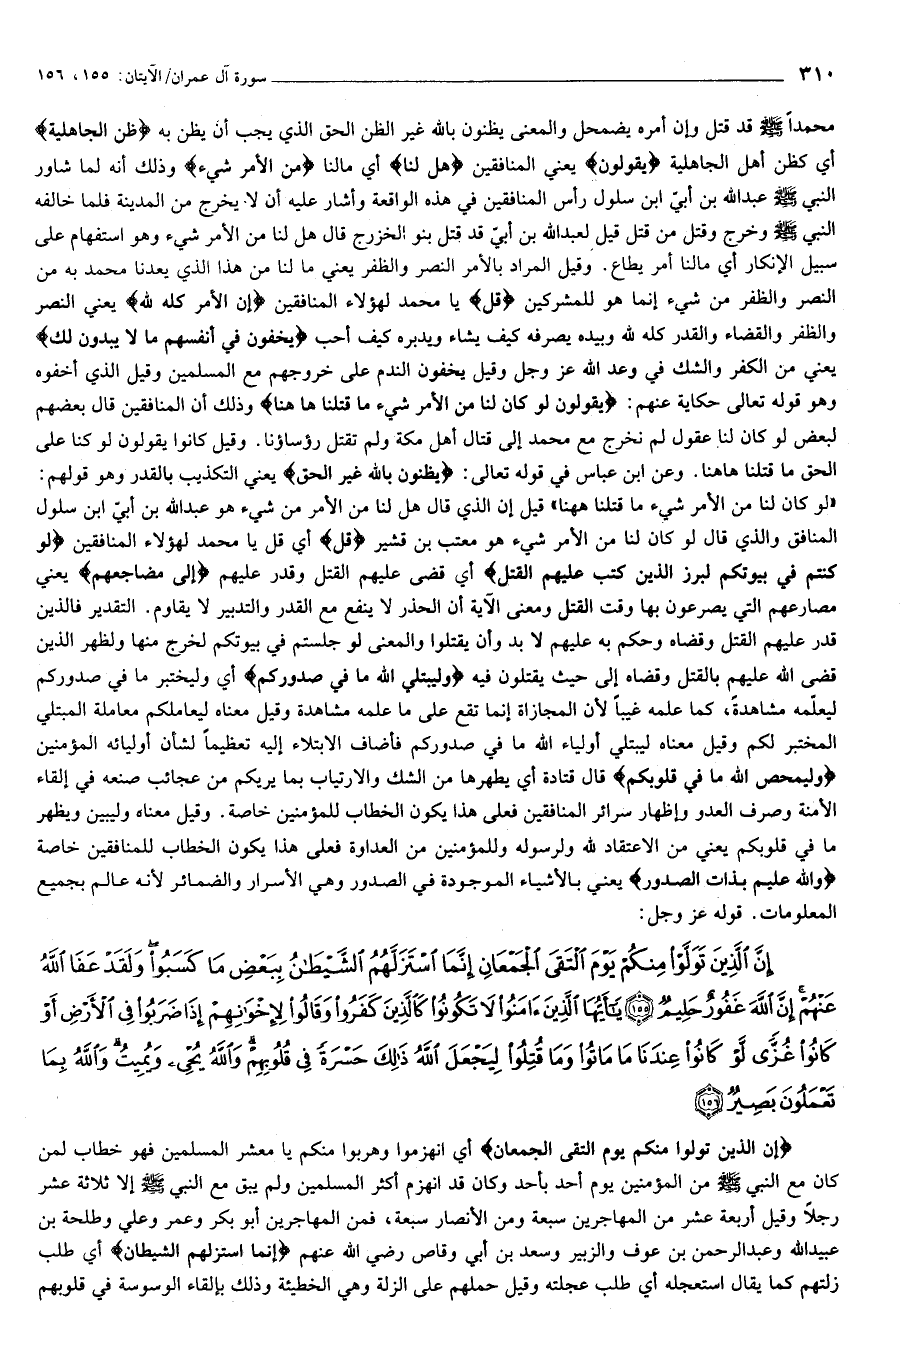 ٣١٠ سورة آل عمران/الآيتان: ١٥٥، ١٥٦
محمداً ﷺ قد قتل وإن أمره يضمحل والمعنى يظنون بالله غير الظن الحق الذي يجب أن يظن به ﴿ظن الجاهلية﴾
أي كظن أهل الجاهلية ﴿يقولون﴾ يعني المنافقين ﴿هل لنا﴾ أي مالنا ﴿من الأمر شيء﴾ وذلك أنه لما شاور
النبي ﷺ عبدالله بن أبيّ ابن سلول رأس المنافقين في هذه الواقعة وأشار عليه أن لا يخرج من المدينة فلما خالفه
النبي ﷺ وخرج وقتل من قتل قيل لعبدالله بن أبيّ قد قتل بنو الخزرج قال هل لنا من الأمر شيء وهو استفهام على
سبيل الإنكار أي مالنا أمر يطاع. وقيل المراد بالأمر النصر والظفر يعني ما لنا من هذا الذي يعدنا محمد به من
النصر والظفر من شيء إنما هو للمشركين ﴿قل﴾ يا محمد لهؤلاء المنافقين ﴿إن الأمر كله لله﴾ يعني النصر
والظفر والقضاء والقدر كله لله وبيده يصرفه كيف يشاء ويدبره كيف أحب ﴿يخفون في أنفسهم ما لا يبدون لك﴾
يعني من الكفر والشك في وعد الله عز وجل وقيل يخفون الندم على خروجهم مع المسلمين وقيل الذي أخفوه
وهو قوله تعالى حكاية عنهم: ﴿يقولون لو كان لنا من الأمر شيء ما قتلنا ها هنا﴾ وذلك أن المنافقين قال بعضهم
لبعض لو كان لنا عقول لم نخرج مع محمد إلى قتال أهل مكة ولم تقتل رؤساؤنا. وقيل كانوا يقولون لو كنا على
الحق ما قتلنا هاهنا. وعن ابن عباس في قوله تعالى: ﴿يظنون بالله غير الحق﴾ يعني التكذيب بالقدر وهو قولهم:
«لو كان لنا من الأمر شيء ما قتلنا ههنا» قيل إن الذي قال هل لنا من الأمر من شيء هو عبدالله بن أبيّ ابن سلول
المنافق والذي قال لو كان لنا من الأمر شيء هو معتب بن قشير ﴿قل﴾ أي قل يا محمد لهؤلاء المنافقين ﴿لو
كنتم في بيوتكم لبرز الذين كتب عليهم القتل﴾ أي قضى عليهم القتل وقدر عليهم ﴿إلى مضاجعهم﴾ يعني
مصارعهم التي يصرعون بها وقت القتل ومعنى الآية أن الحذر لا ينفع مع القدر والتدبير لا يقاوم. التقدير فالذين
قدر عليهم القتل وقضاه وحكم به عليهم لا بد وأن يقتلوا والمعنى لو جلستم في بيوتكم لخرج منها ولظهر الذين
قضى الله عليهم بالقتل وقضاه إلى حيث يقتلون فيه ﴿وليبتلي الله ما في صدوركم﴾ أي وليختبر ما في صدوركم
ليعلّمه مشاهدةً، كما علمه غيباً لأن المجازاة إنما تقع على ما علمه مشاهدة وقيل معناه ليعاملكم معاملة المبتلي
المختبر لكم وقيل معناه ليبتلي أولياء الله ما في صدوركم فأضاف الابتلاء إليه تعظيماً لشأن أوليائه المؤمنين
﴿وليمحص الله ما في قلوبكم﴾ قال قتادة أي يطهرها من الشك والارتياب بما يريكم من عجائب صنعه في إلقاء
الأمنة وصرف العدو وإظهار سرائر المنافقين فعلى هذا يكون الخطاب للمؤمنين خاصة. وقيل معناه وليبين ويظهر
ما في قلوبكم يعني من الاعتقاد لله ولرسوله وللمؤمنين من العداوة فعلى هذا يكون الخطاب للمنافقين خاصة
﴿والله عليم بذات الصدور﴾ يعني بالأشياء الموجودة في الصدور وهي الأسرار والضمائر لأنه عالم بجميع
المعلومات. قوله عز وجل:
إِنَّ ٱلَّذِينَ تَوَلَّوْا۟ مِنكُمْ يَوْمَ ٱلْتَقَى ٱلْجَمْعَانِ إِنَّمَا ٱسْتَزَلَّهُمُ ٱلشَّيْطَٰنُ بِبَعْضِ مَا كَسَبُوا۟ ۖ وَلَقَدْ عَفَا ٱللَّهُ
عَنْهُمْ ۗ إِنَّ ٱللَّهَ غَفُورٌ حَلِيمٌ ﴿١٥٥﴾ يَٰٓأَيُّهَا ٱلَّذِينَ ءَامَنُوا۟ لَا تَكُونُوا۟ كَٱلَّذِينَ كَفَرُوا۟ وَقَالُوا۟ لِإِخْوَٰنِهِمْ إِذَا ضَرَبُوا۟ فِى ٱلْأَرْضِ أَوْ
كَانُوا۟ غُزًّى لَّوْ كَانُوا۟ عِندَنَا مَا مَاتُوا۟ وَمَا قُتِلُوا۟ لِيَجْعَلَ ٱللَّهُ ذَٰلِكَ حَسْرَةً فِى قُلُوبِهِمْ ۗ وَٱللَّهُ يُحْىِۦ وَيُمِيتُ ۗ وَٱللَّهُ بِمَا
تَعْمَلُونَ بَصِيرٌ ﴿١٥٦﴾
﴿إن الذين تولوا منكم يوم التقى الجمعان﴾ أي انهزموا وهربوا منكم يا معشر المسلمين فهو خطاب لمن
كان مع النبي ﷺ من المؤمنين يوم أحد بأحد وكان قد انهزم أكثر المسلمين ولم يبق مع النبي ﷺ إلا ثلاثة عشر
رجلاً وقيل أربعة عشر من المهاجرين سبعة ومن الأنصار سبعة، فمن المهاجرين أبو بكر وعمر وعلي وطلحة بن
عبيدالله وعبدالرحمن بن عوف والزبير وسعد بن أبي وقاص رضي الله عنهم ﴿إنما استزلهم الشيطان﴾ أي طلب
زلتهم كما يقال استعجله أي طلب عجلته وقيل حملهم على الزلة وهي الخطيئة وذلك بإلقاء الوسوسة في قلوبهم